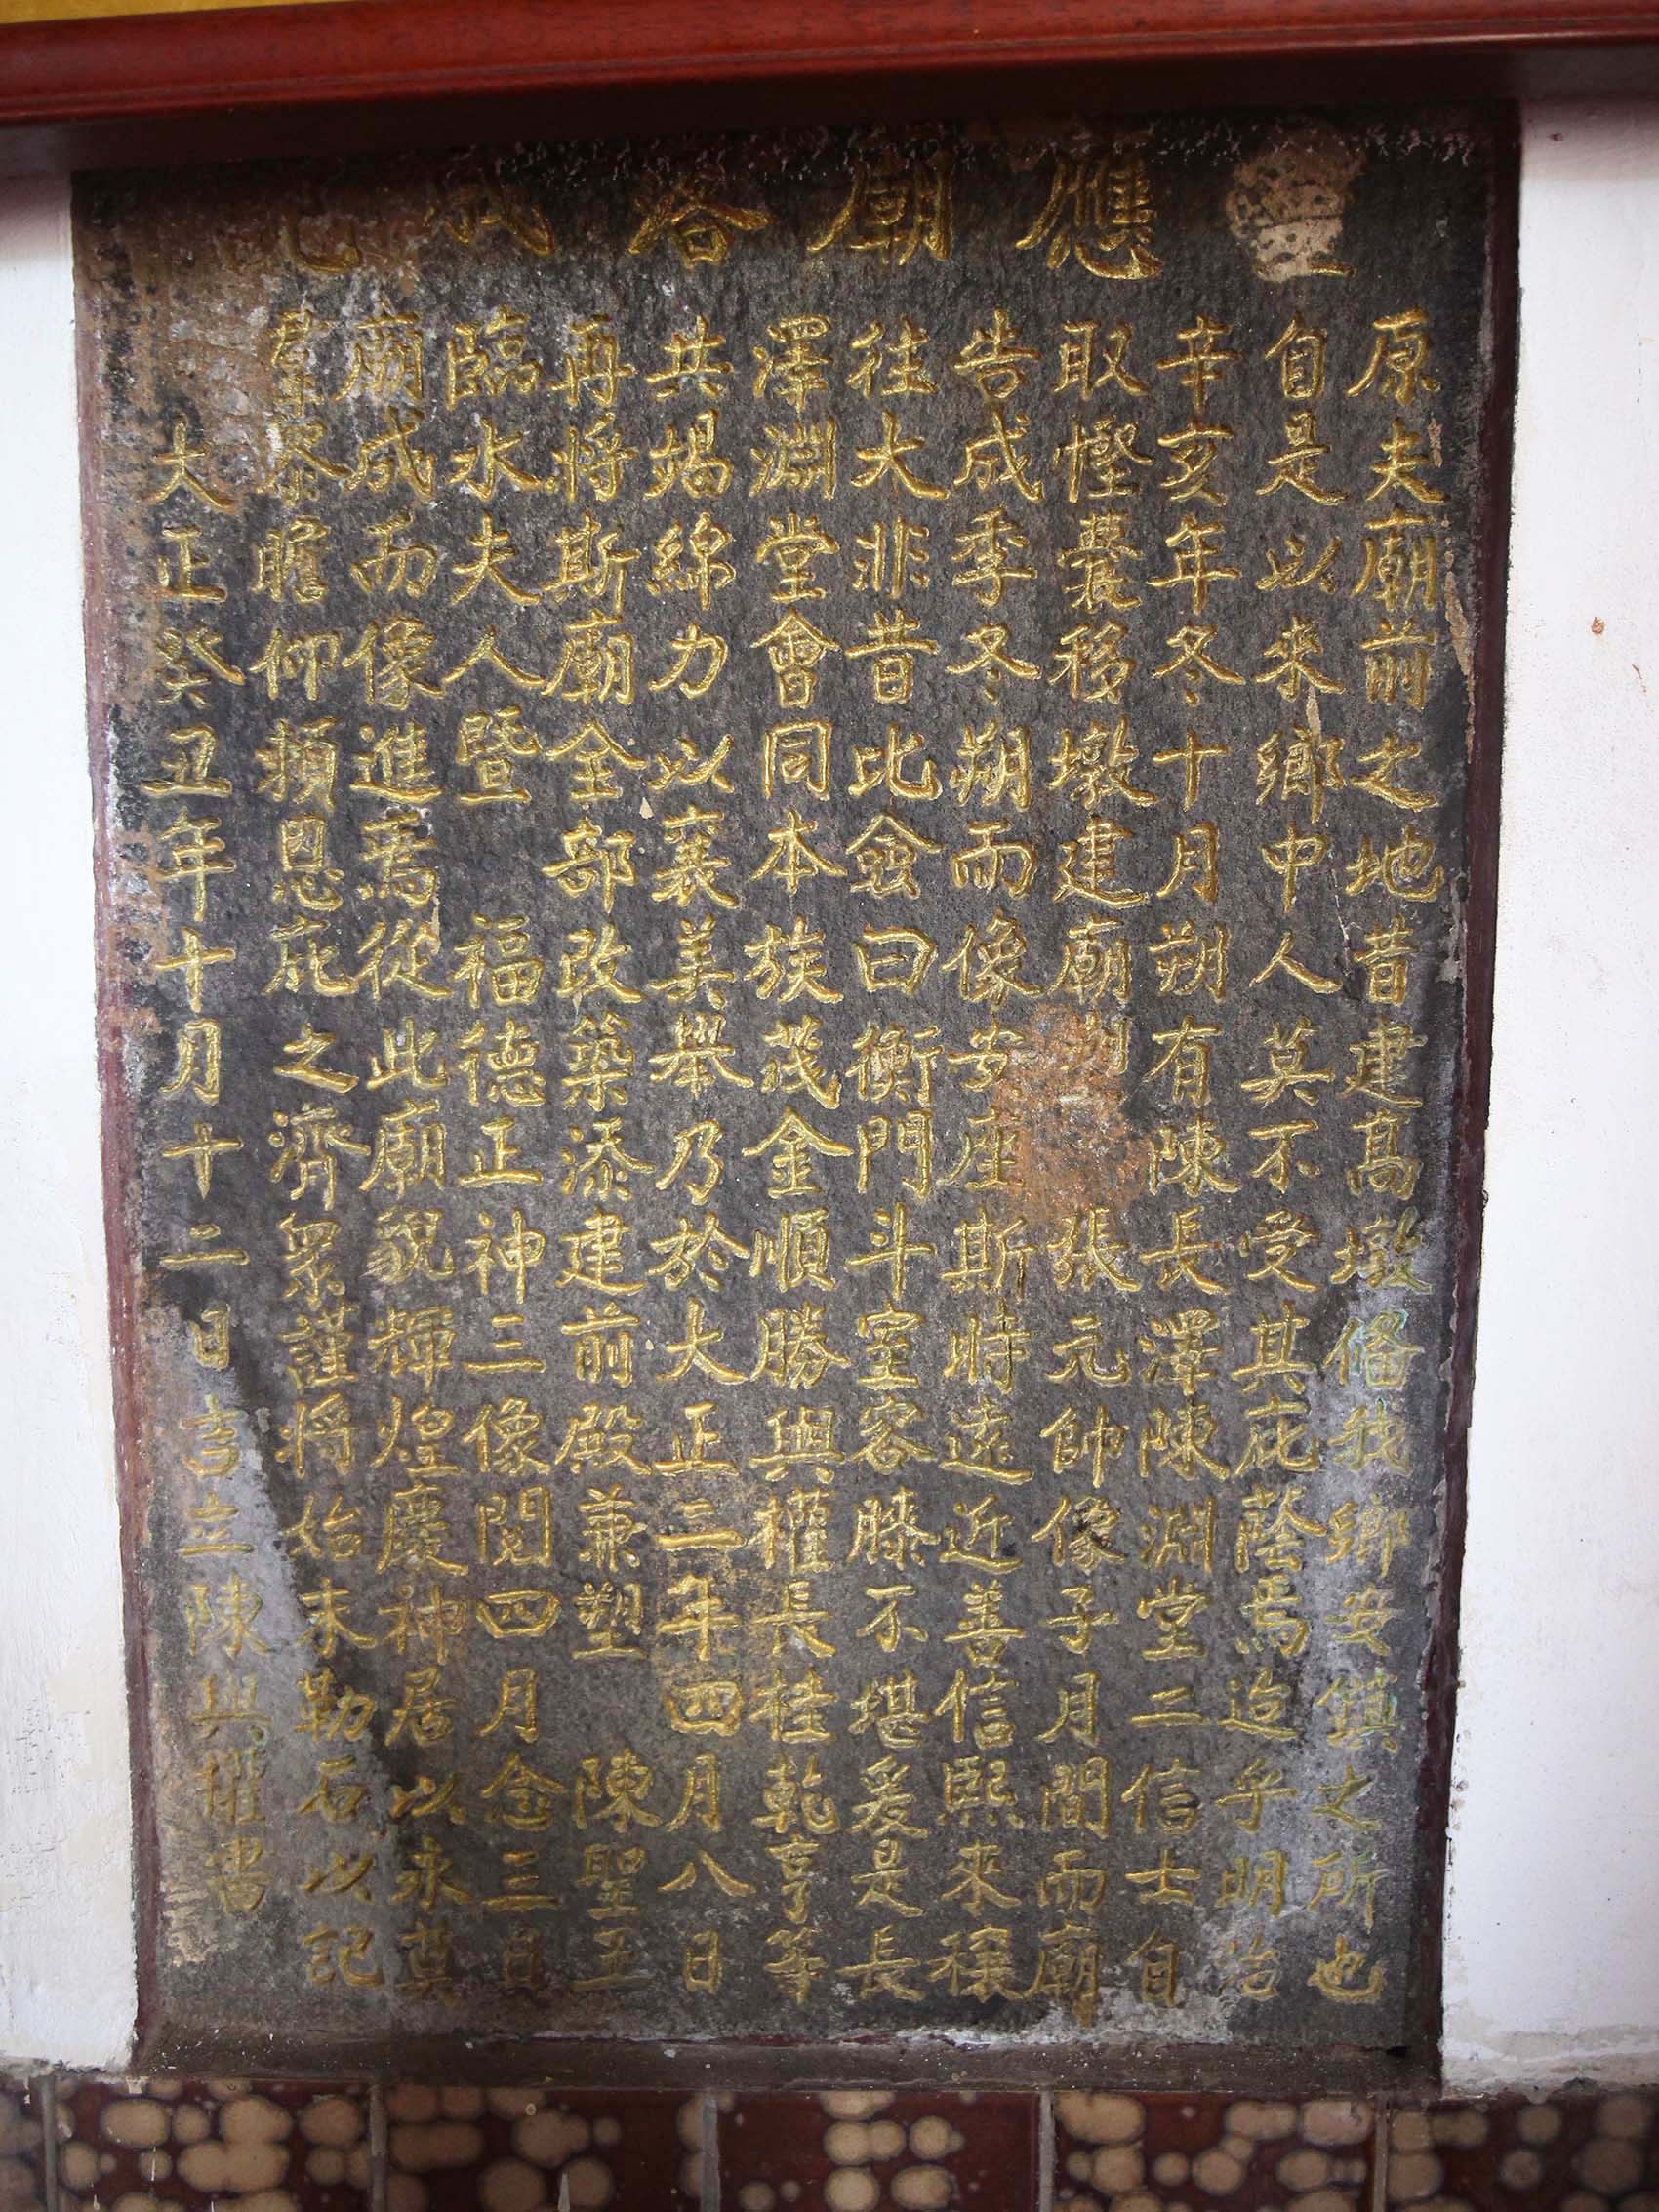 應廟落成記
原夫廟前之地昔建高墩俻我鄉安鎮之所也
自是以來鄉中人莫不受其庇蔭焉迨乎明治
辛亥年冬十月朔有陳長澤陳淵堂二信士自
取慳囊移墩建廟 張元帥像子月間而廟
告成季冬朔而像安座斯時遠近善信熙來穰
往大非昔比僉曰衡門斗室容膝不堪爰是長
澤淵堂會同本族茂金順勝與權長桂乾亨等
共竭綿力以襄美舉乃於大正二年四月八日
再將斯廟全部改築添建前殿兼塑 陳聖王
臨水夫人暨 福德正神三像閱四月念三日
廟成而像進焉從此廟貌輝煌慶神居以永奠
羣黎瞻仰賴恩庇之濟眾謹將始末勒石以記
大正癸丑年十月十二日吉立陳與權書